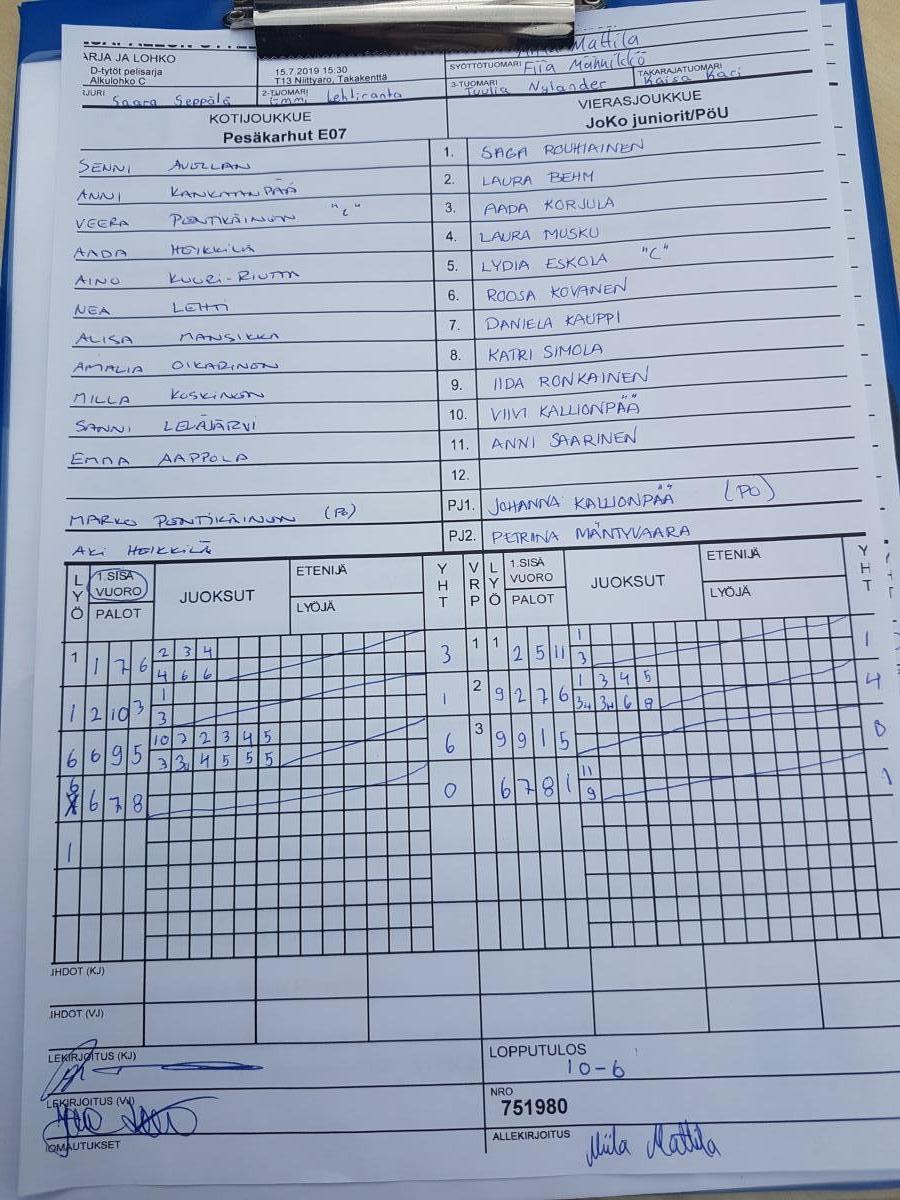 Mattila
ARJA JA LOHKO
D-tytöt pelisarja
Alkulohko C
15.7.2019 15:30
T13 Niittyaro, Takakenttä
SYÖTTÖTUOMARI Fiia Männikkö
Saara Seppälä
2-TUOMARI Emmi Lehtiranta
3-TUOMARI Tuulia Nylander
TAKARAJATUOMARI Kaisa Kari
KOTIJOUKKUE
Pesäkarhut E07
VIERASJOUKKUE
JoKo juniorit/PöU
SENNI AVELLAN 1. SAGA ROUHIAINEN
ANNI KANKAANPÄÄ 2. LAURA BEHM
VEERA PENTIKÄINEN "C" 3. AADA KORJULA
AADA HEIKKILÄ 4. LAURA MUSKU
AINO KUURI-RIUTTA 5. LYDIA ESKOLA "C"
NEA LEHTI 6. ROOSA KOVANEN
ALISA MANSIKKA 7. DANIELA KAUPPI
AMALIA OIKARINEN 8. KATRI SIMOLA
MILLA KOSKINEN 9. IIDA RONKAINEN
SANNI LEHJÄRVI 10. VIIVI KALLIONPÄÄ
EMMA AAPPOLA 11. ANNI SAARINEN
12.
MARKO PENTIKÄINEN (PO) PJ1. JOHANNA KALLIONPÄÄ (PO)
AKI HEIKKILÄ PJ2. PETRINA MÄNTYVAARA
LYÖ 1.SISÄ VUORO PALOT JUOKSUT ETENIJÄ LYÖJÄ YHT VRP LYÖ 1.SISÄ VUORO PALOT JUOKSUT ETENIJÄ LYÖJÄ YHT
1 1 7 6 2 3 4 3 1 1 2 5 11 1 1
4 6 6 3
1 2 10 3 1 1 2 9 2 7 6 1 3 4 5 4
3 3 3 6 8
6 6 9 5 10 2 2 3 4 5 6 3 9 9 1 5 0
3 3 4 5 5 5
6 6 7 8 0 6 7 8 1 11 1
9
1
IHDOT (KJ)
IHDOT (VJ)
LEKIRJOITUS (KJ)
LOPPUTULOS
10-6
LEKIRJOITUS (VJ)
NRO
751980
OMAUTUKSET
ALLEKIRJOITUS Miila Mattila